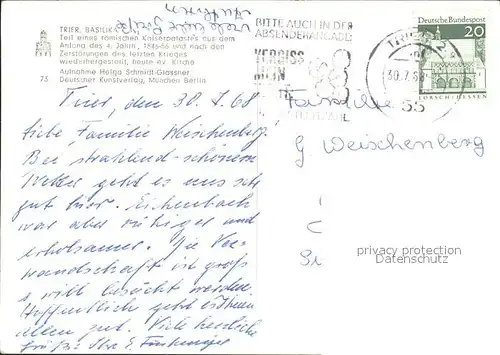 TRIER, BASILIKA
Teil eines römischen Kaiserpalastes aus dem
Anfang des 4. Jahrh., 1846-56 und nach den
Zerstörungen des letzten Krieges
wiederhergestellt, heute ev. Kirche
Aufnahme Helga Schmidt-Glassner
73 Deutscher Kunstverlag, München Berlin
Viele liebe Grüße
BITTE AUCH IN DER
ABSENDERANGABE
VERGISS
MEIN
NICHT
TRIER 2
30.7.68
55
Deutsche Bundespost
20
LORSCH/HESSEN
Trier, den 30. 7. 68
Liebe Familie Weischenberg.
Bei strahlend-schönem
Wetter geht es uns sehr
gut hier. Eichenbach
war aber ruhiger und
erholsamer. Die Ver-
wandschaft ist groß
u will besucht werden
Hoffentlich geht es Ihnen
allen gut. Viele herzliche
Grüße: Ihre E.
Familie
G Weischenberg
privacy protection
Datenschutz